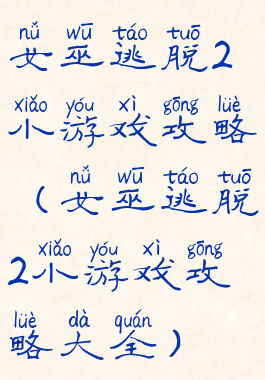 nǚ wū táo tuō
女巫逃脱2
xiǎo yóu xì gōng lüè
小游戏攻略
nǚ wū táo tuō
（女巫逃脱
xiǎo yóu xì gōng
2小游戏攻
lüè dà quán
略大全）